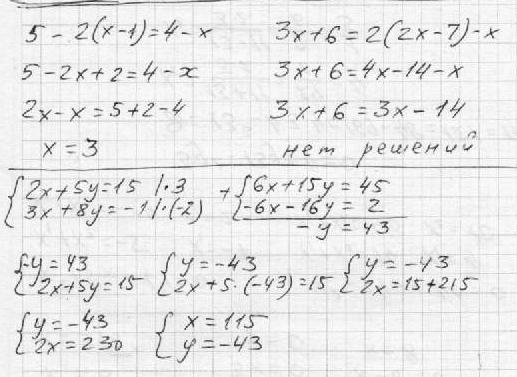 5 - 2(x-1) = 4 - x
5 - 2x + 2 = 4 - x
2x - x = 5 + 2 - 4
x = 3
3x + 6 = 2(2x - 7) - x
3x + 6 = 4x - 14 - x
3x + 6 = 3x - 14
нет решений
{ 2x + 5y = 15 | · 3
3x + 8y = -1 | · (-2)
+ { 6x + 15y = 45
-6x - 16y = 2
-y = 43
{ -y = 43
2x + 5y = 15
{ y = -43
2x + 5 · (-43) = 15
{ y = -43
2x = 15 + 215
{ y = -43
2x = 230
{ x = 115
y = -43